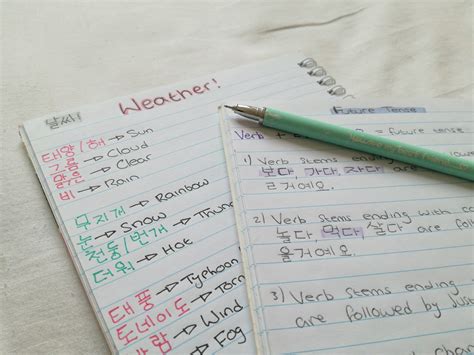 날씨!
Weather!
태양/해 → Sun
구름 → Cloud
맑은 → Clear
비 → Rain
무지개 → Rainbow
눈 → Snow
천둥/번개 → Thun
더워 → Hot
태풍 → Typhoon
토네이도 → Torn
람 → Wind
Fog
Future Tense
Verb + = future tense
1) Verb stems ending
보다, 가다, 자다 are
ㄹ거에요.
2) Verb stems ending with co
놀다, 먹다, 살다 are foll
을거에요.
3) Verb stems ending
are followed by jus